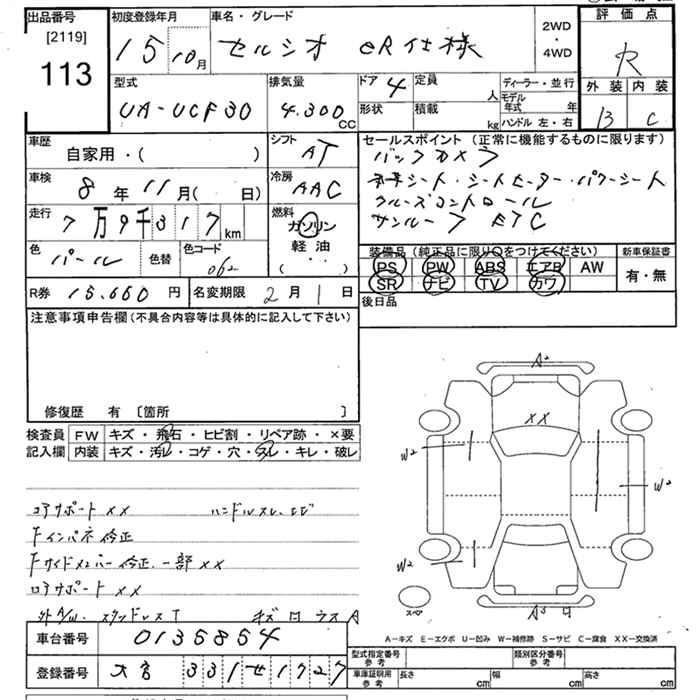 出品番号
[2119]
113
初度登録年月
15 10月
車名・グレード
セルシオ eR仕様
2WD
・
4WD
評価点
R
外装 内装
B C
型式
UA-UCF30
排気量
4.300 CC
ドア 4
形状
定員 人
積載 kg
ディーラー・並行
モデル年式 年
ハンドル 左・右
車歴
自家用・( )
シフト
AT
車検
8年11月( 日)
冷房
AAC
走行
7万9千317 km
燃料
ガソリン
軽油
( )
色
パール
色替
色コード
062
セールスポイント (正常に機能するものに限ります)
バックカメラ
シート・シートヒーター・パワーシート
クルーズコントロール
サンルーフ ETC
装備品(純正品に限り○をつけてください)
PS PW ABS エアB AW
SR ナビ TV カワ
新車保証書
有・無
R券 15.660 円
名変期限 2月1日
後日品
注意事項申告欄(不具合内容等は具体的に記入して下さい)
修復歴 有 〔箇所 〕
検査員記入欄
FW キズ・飛石・ヒビ割・リペア跡・×要
内装 キズ・汚レ・コゲ・穴・スレ・キレ・破レ
コアサポート XX ハンドルスレ、ヒビ
Fインパネ修正
Fサイドメンバー修正、一部XX
ロアサポート XX
外A/W、スタッドレスT キズ ガラスA
A2
XX
W2
W2
W2
スペア
A-キズ E-エクボ U-凹み W-補修跡 S-サビ C-腐食 XX-交換済
車台番号 0135854
登録番号 大宮 331 せ 1727
型式指定番号 参考
類別区分番号 参考
車庫証明用 参考
長さ cm 幅 cm 高さ cm